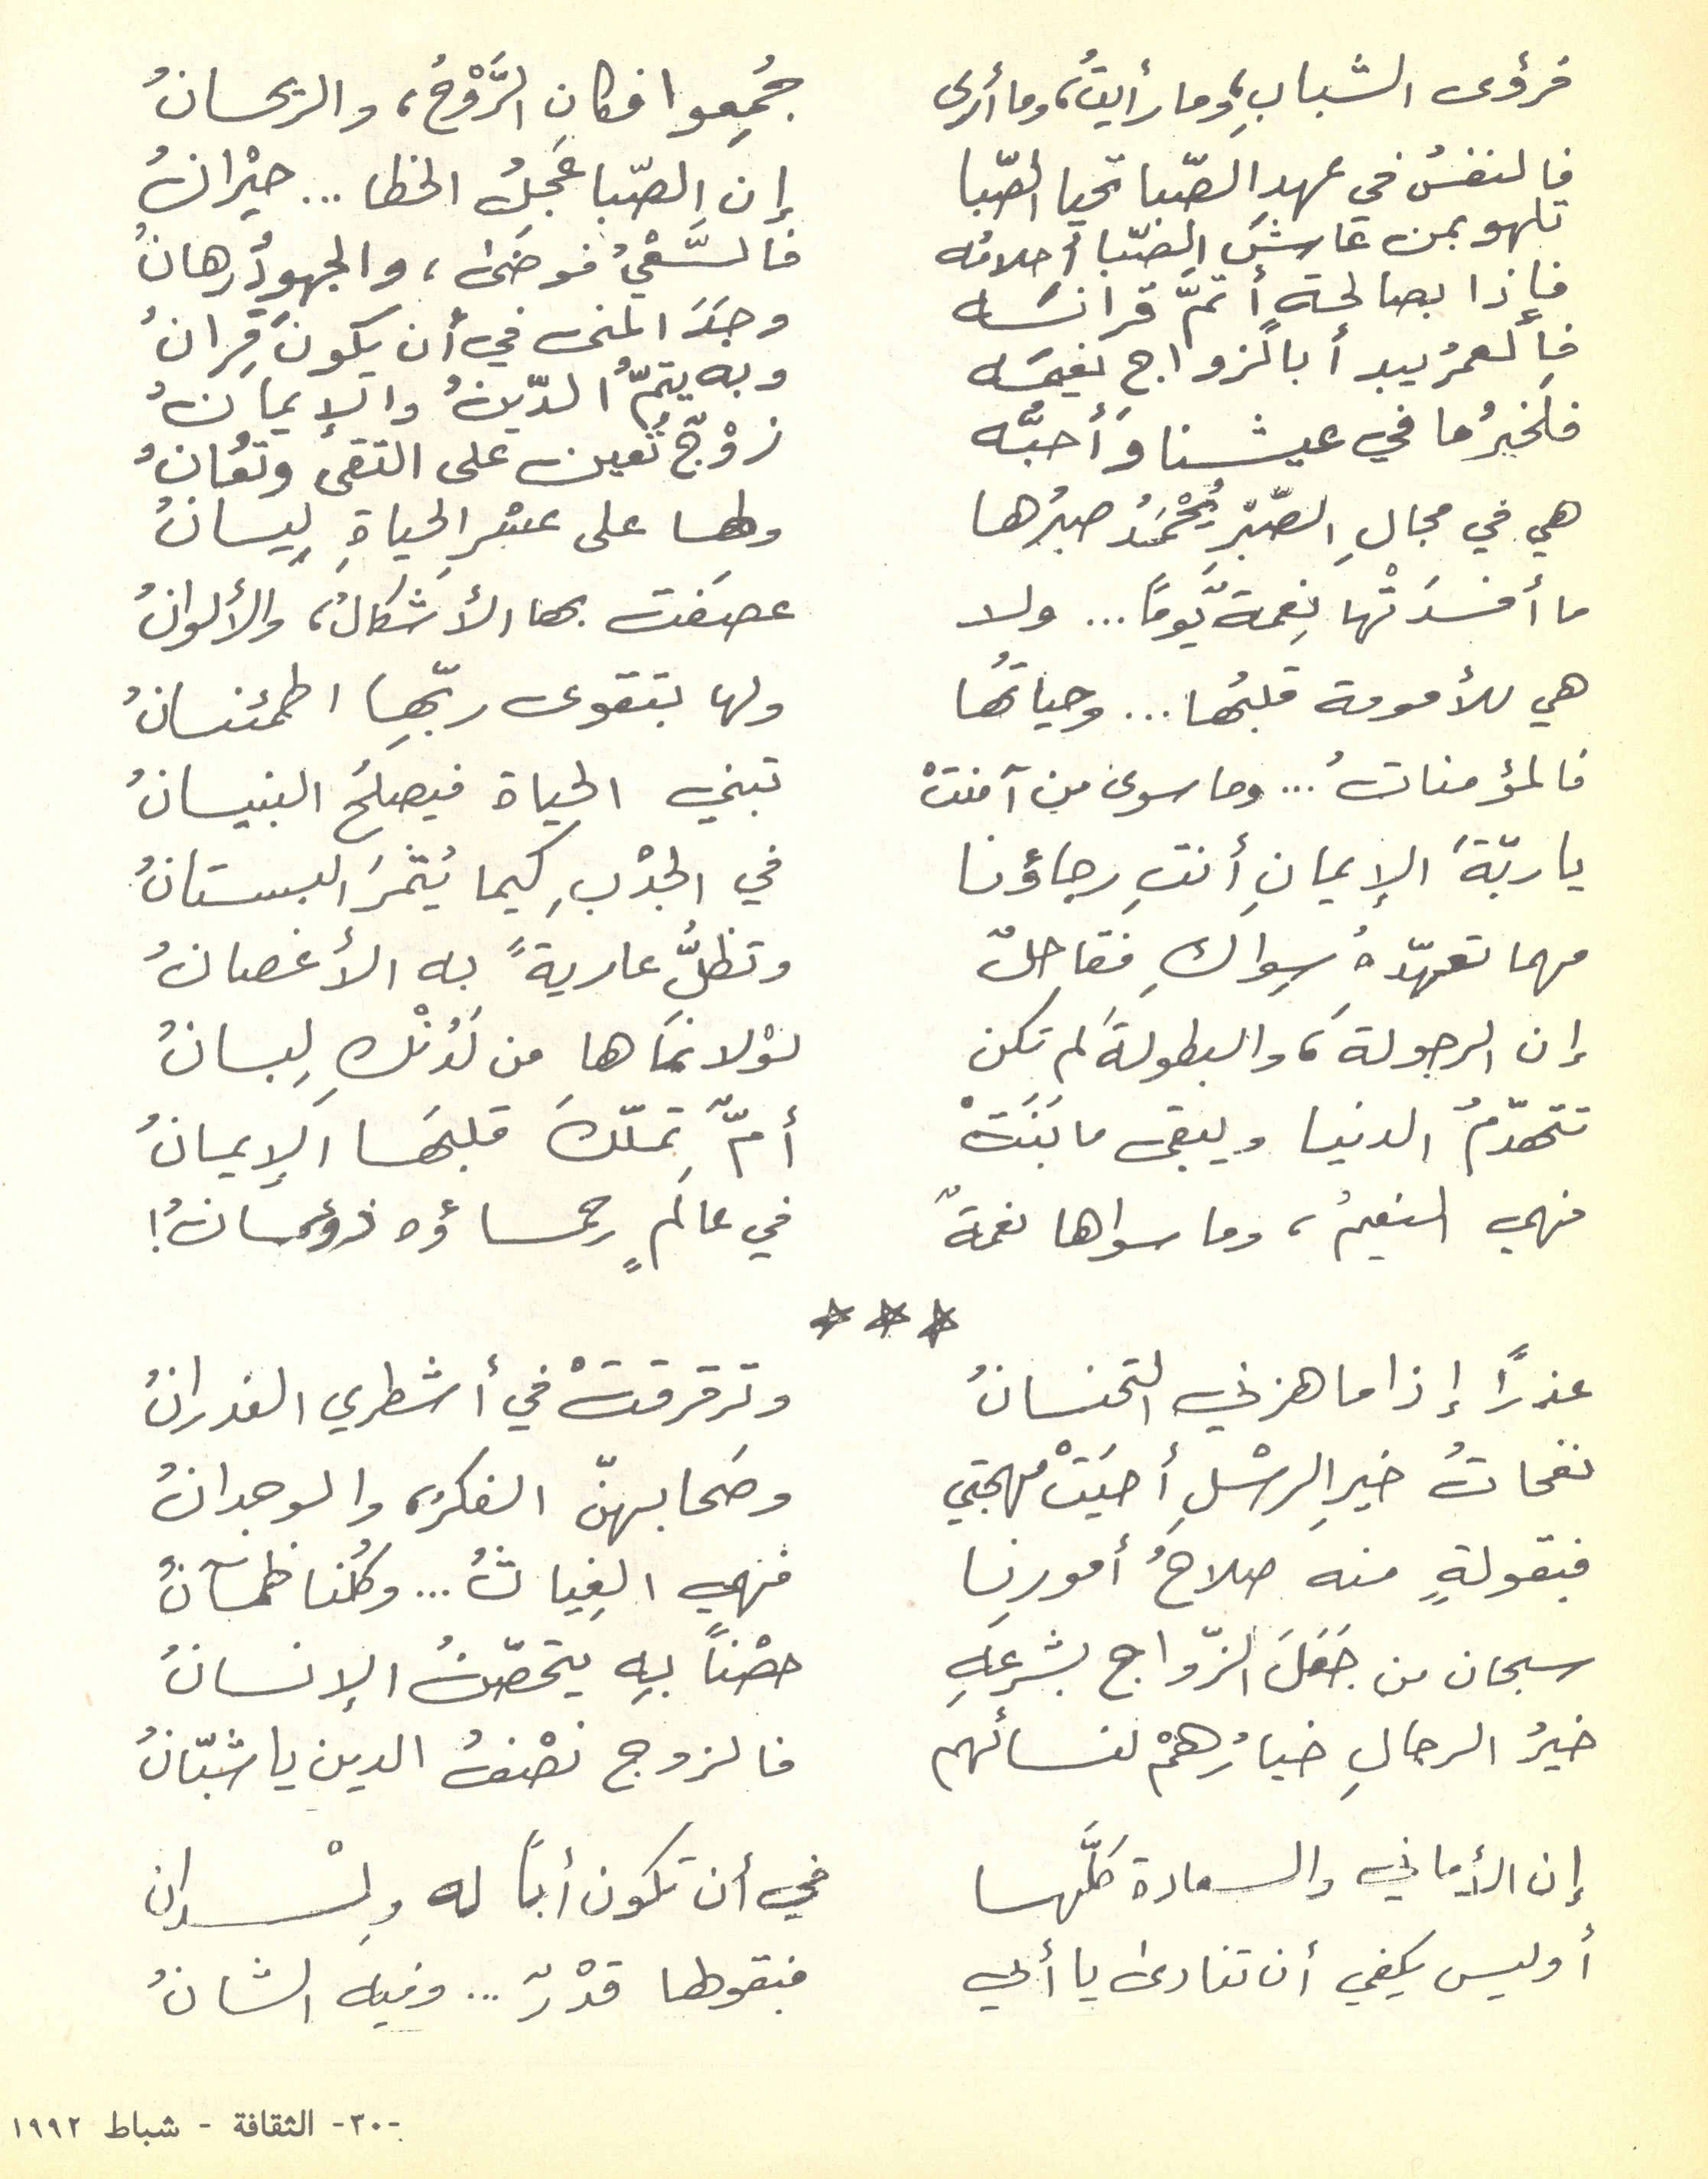 فرؤى الشبابِ، وما رأيتُ، وما أرى جُمِعوا فكان الرَّوْحُ، والريحانُ
فالنفسُ في عهدِ الصّبا تحيا الصّبا إن الصّبا عَجِلُ الخطا ... حيْرانُ
تلهو بمن عاشَ الصّبا أحلامُه فالسَّعْيُ فوضَى، والجهودُ رهانُ
فإذا بصالحة أتمَّ قرانَه وجَدَ المنى في أن يكونَ قِرانُ
فالعمرُ يبدأ بالزواج نعيمَه وبه يتمُّ الدّينُ والإيمانُ
فلخيرُ ما في عيشنا وَأَحبُّه زوْجٌ تُعين على التقى وتُعانُ
هي في مجالِ الصّبْرِ يُحْمَدُ صبرُها ولها على عسْرِ الحياةِ لِيسانُ
ما أفسدَتْها نِعمةٌ يَومًا ... ولا عصَفت بها الأشكالُ، والألوانُ
هي للأمومة قلبُها ... وحياتُها ولها بتقوى ربّهِا اطمئنانُ
فالمؤمناتُ ... وما سوى من آمنتْ تبني الحياة فيصلحُ البنيانُ
يا ربّةَ الإيمانِ أنتِ رجاؤنا في الجدْبِ كيما يُثمرَ البستانُ
مهما تعهّدهُ سِواكِ فقاحلٌ وتظلُّ عاريةً به الأغصانُ
إن الرجولةَ، والبطولةَ لم تكن لوْلا نمَاها من لَدُنْكِ لِبانُ
تتهدّمُ الدنيا ويبقى ما بَنَتْ أمٌّ تملّكَ قلبَها الإيمانُ
فهي النعيمُ، وما سواها نغمةٌ في عالَمٍ رحماؤه ذؤبانُ!
***
عذرًا إذا ما هزني التحنانُ وترقرقتْ في أشطري الغدرانُ
نفحاتُ خيرِ الرسْلِ أحيَتْ مهجتي وصَحا بهنّ الفكرُ، والوجدانُ
فبقولةٍ منه صلاحُ أمورنِا فهي الغِياثُ ... وكُلنا ظمآنُ
سبحان من جَعَلَ الزّواج بشرعهِ حصْناً بهِ يتحصّنُ الإنسانُ
خيرُ الرجالِ خيارُهمْ لنسائهم فالزوج نصْفُ الدين يا شبّانُ
إن الأماني والسعادة كلَّها في أن تكون أبًا له ولْدان
أوليس يكفي أن تنادى يا أبي فبقولها قدْرٌ ... وفيه الشانُ
-٣٠- الثقافة - شباط ١٩٩٢